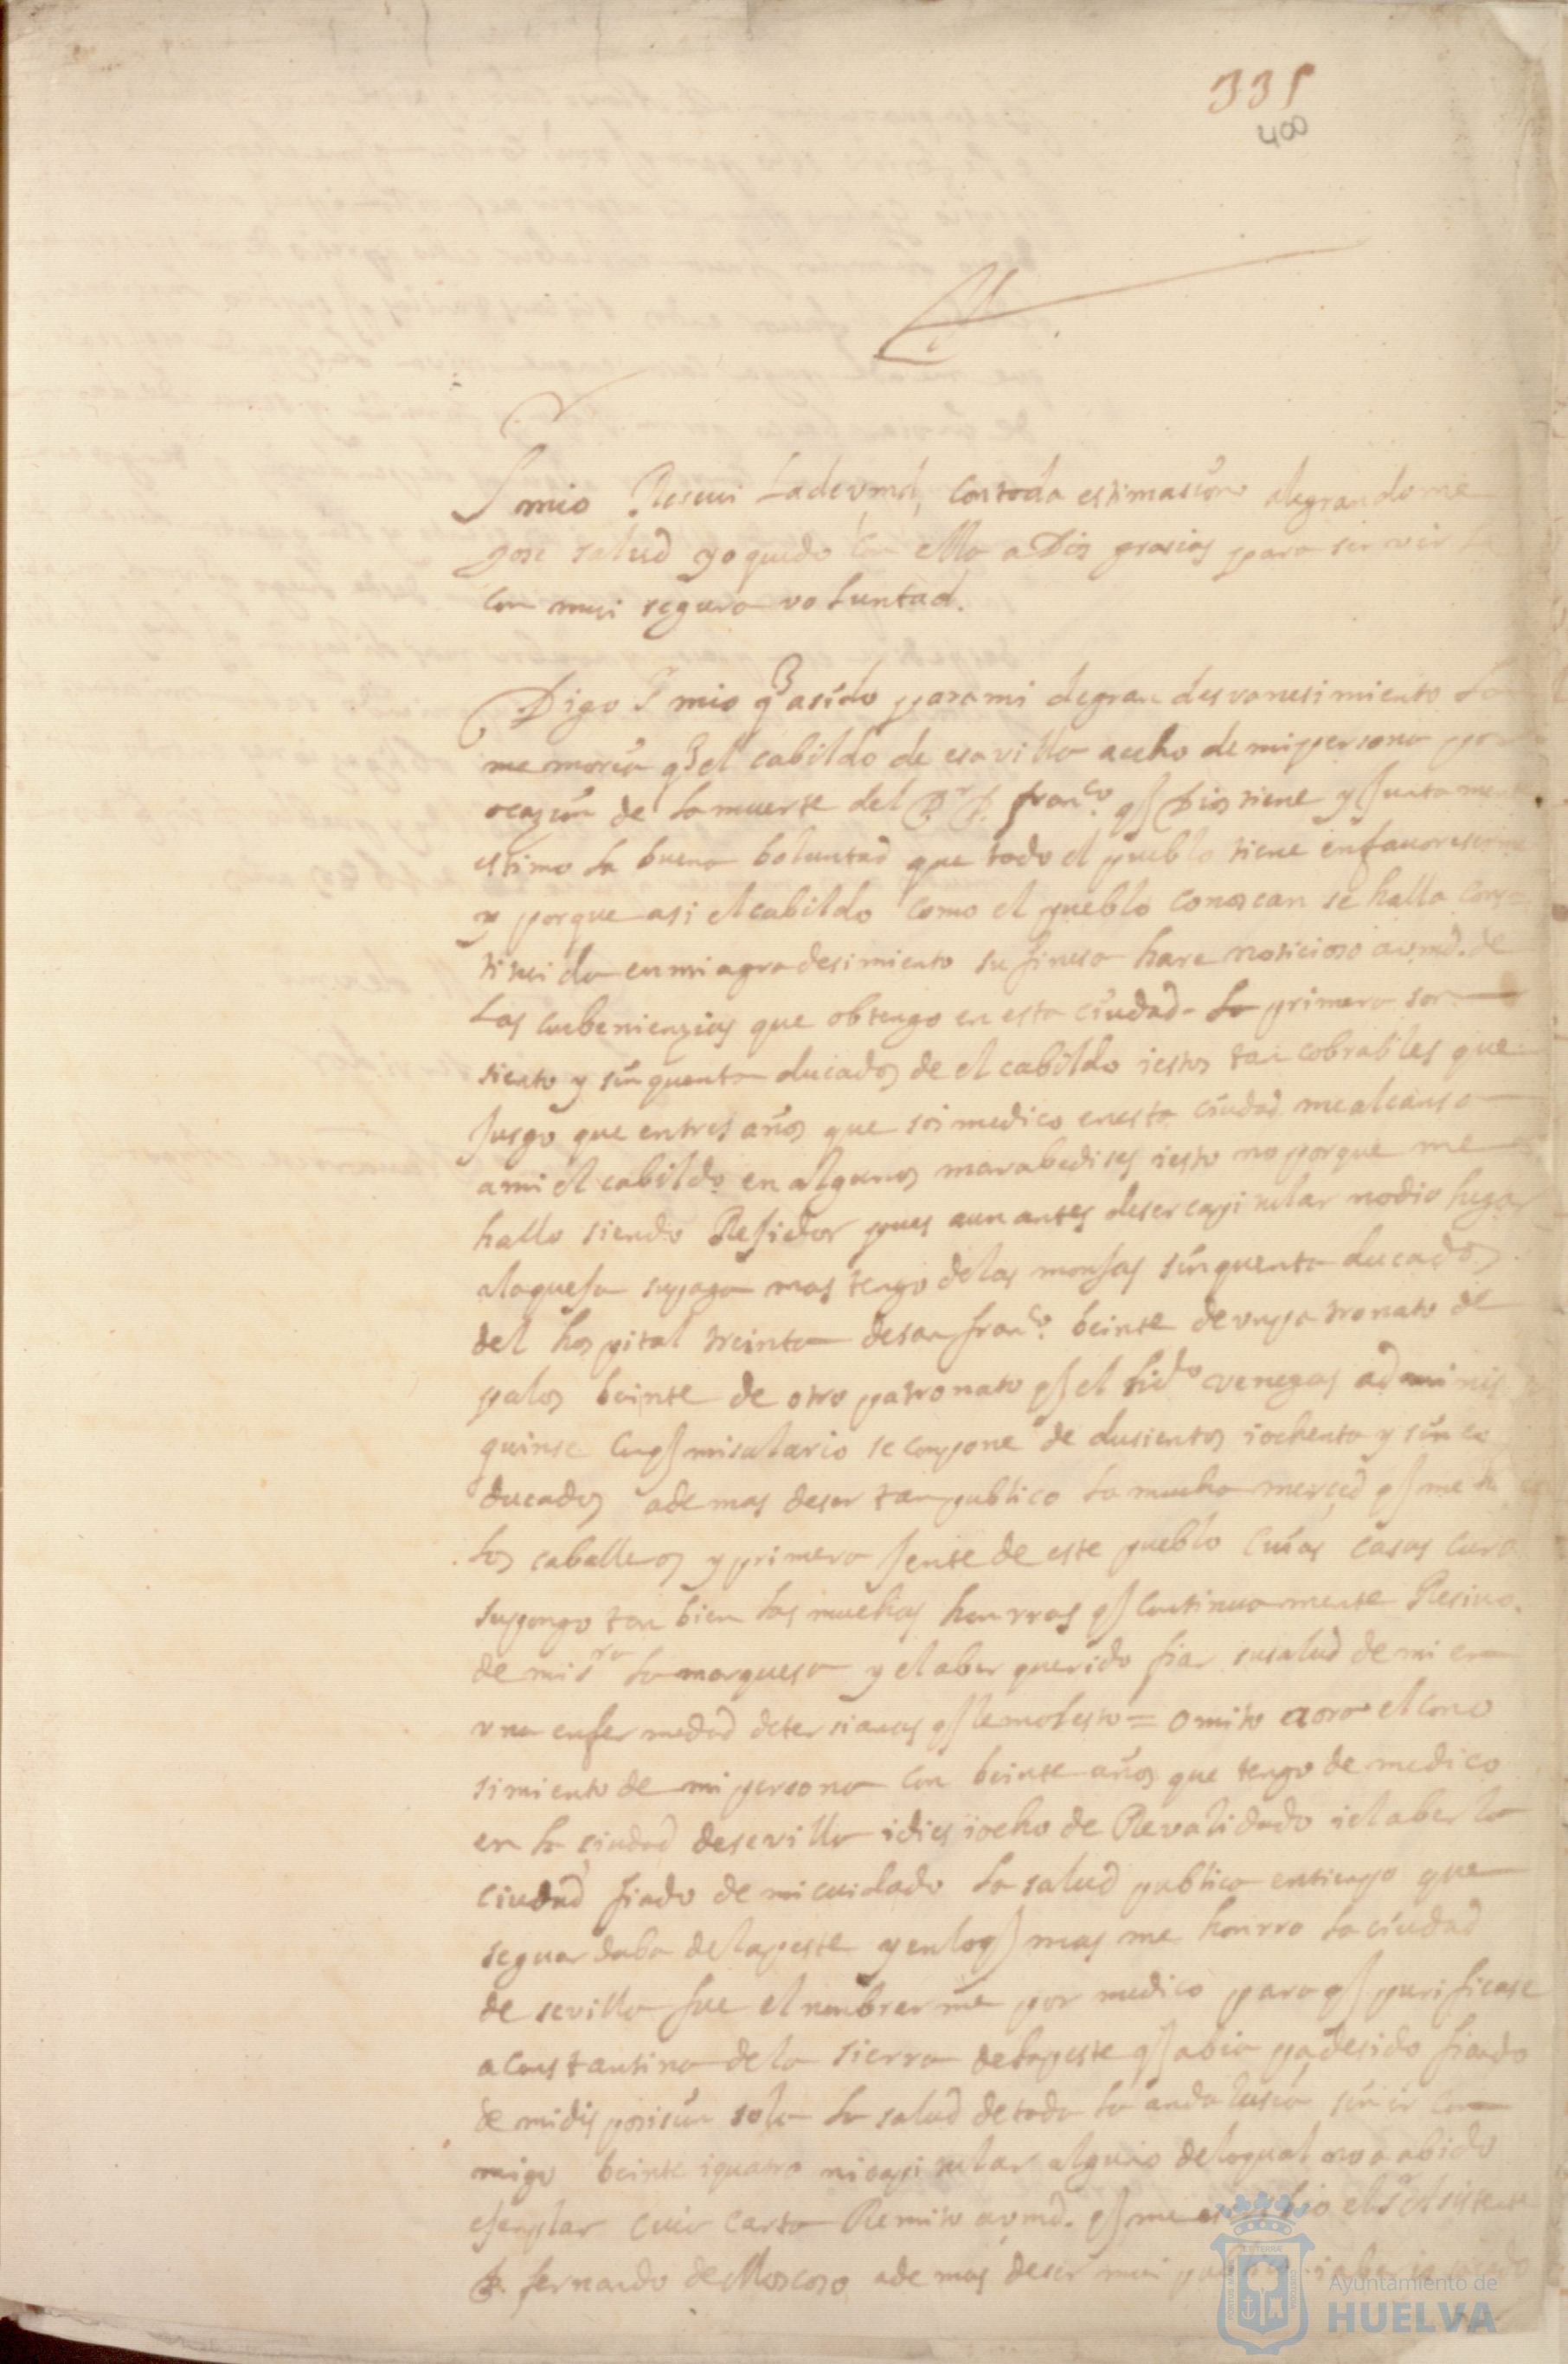 331
400
S mio Reseui la de vmd, con toda estimasion alegrandome
gose salud yo quedo con ella a Dios grasias para servir
con mui segura voluntad.
Digo Sr mio q asido para mi de gran desvanesimiento la
memoria q el cabildo de esa villa a echo de mi persona por
ocazion de la muerte del Dr D. franco q Dios tiene y juntamente
estimo la buena boluntad que todo el pueblo tiene en fauoreserme
y porque asi el cabildo como el pueblo conoscan se halla cons
tituida en mi agradesimiento su finesa hare noticioso a vmd. de
las conbenienzias que obtengo en esta ciudad. la primera son
siento y sinquenta ducados de el cabildo i estos tan cobrables que
jusgo que en tres años que soi medico en esta ciudad me alcansa
a mi el cabildo en algunos marabedises i esto no porque me
hallo siendo Rejidor pues aun antes de ser capitular no dio lugar
a la queja su paga mas tengo de las monjas sinquenta ducados
del hospital treinta de san franco. beinte de un patronato de
palos beinte de otro patronato q el lido venegas adminis
quinse con q mi salario se compone de dusientos i ochenta y sinco
ducados ademas de ser tan publico la mucha merced q me
los caballeros y primera jente de este pueblo cuias casas curo
supongo tan bien las muchas honrras q continuamente Resiuo
de mi sra la marquesa y el aber querido fiar su salud de mi en
una enfermedad de tersianas q le molesto = omito aora el cono
simiento de mi persona con beinte años que tengo de medico
en la ciudad de sevilla i dies i ocho de Revalidado i el aber la
ciudad fiado de mi cuidado la salud publica en tienpo que
se guardaba de la peste y en lo q mas me honrro la ciudad
de sevilla fue el nonbrarme por medico para q purificase
a constantina de la sierra de la peste q abia padesido fiando
de mi disposision sola la salud de toda la andalusia sin ir con
migo beinte i quatro ni capitular alguno de lo qual no a abido
ejenplar cuia carta Remito a vmd. q me escribio el sr asistente
D. fernando de Moscoso ademas de ser mui publico i aber
Ayuntamiento de
HUELVA